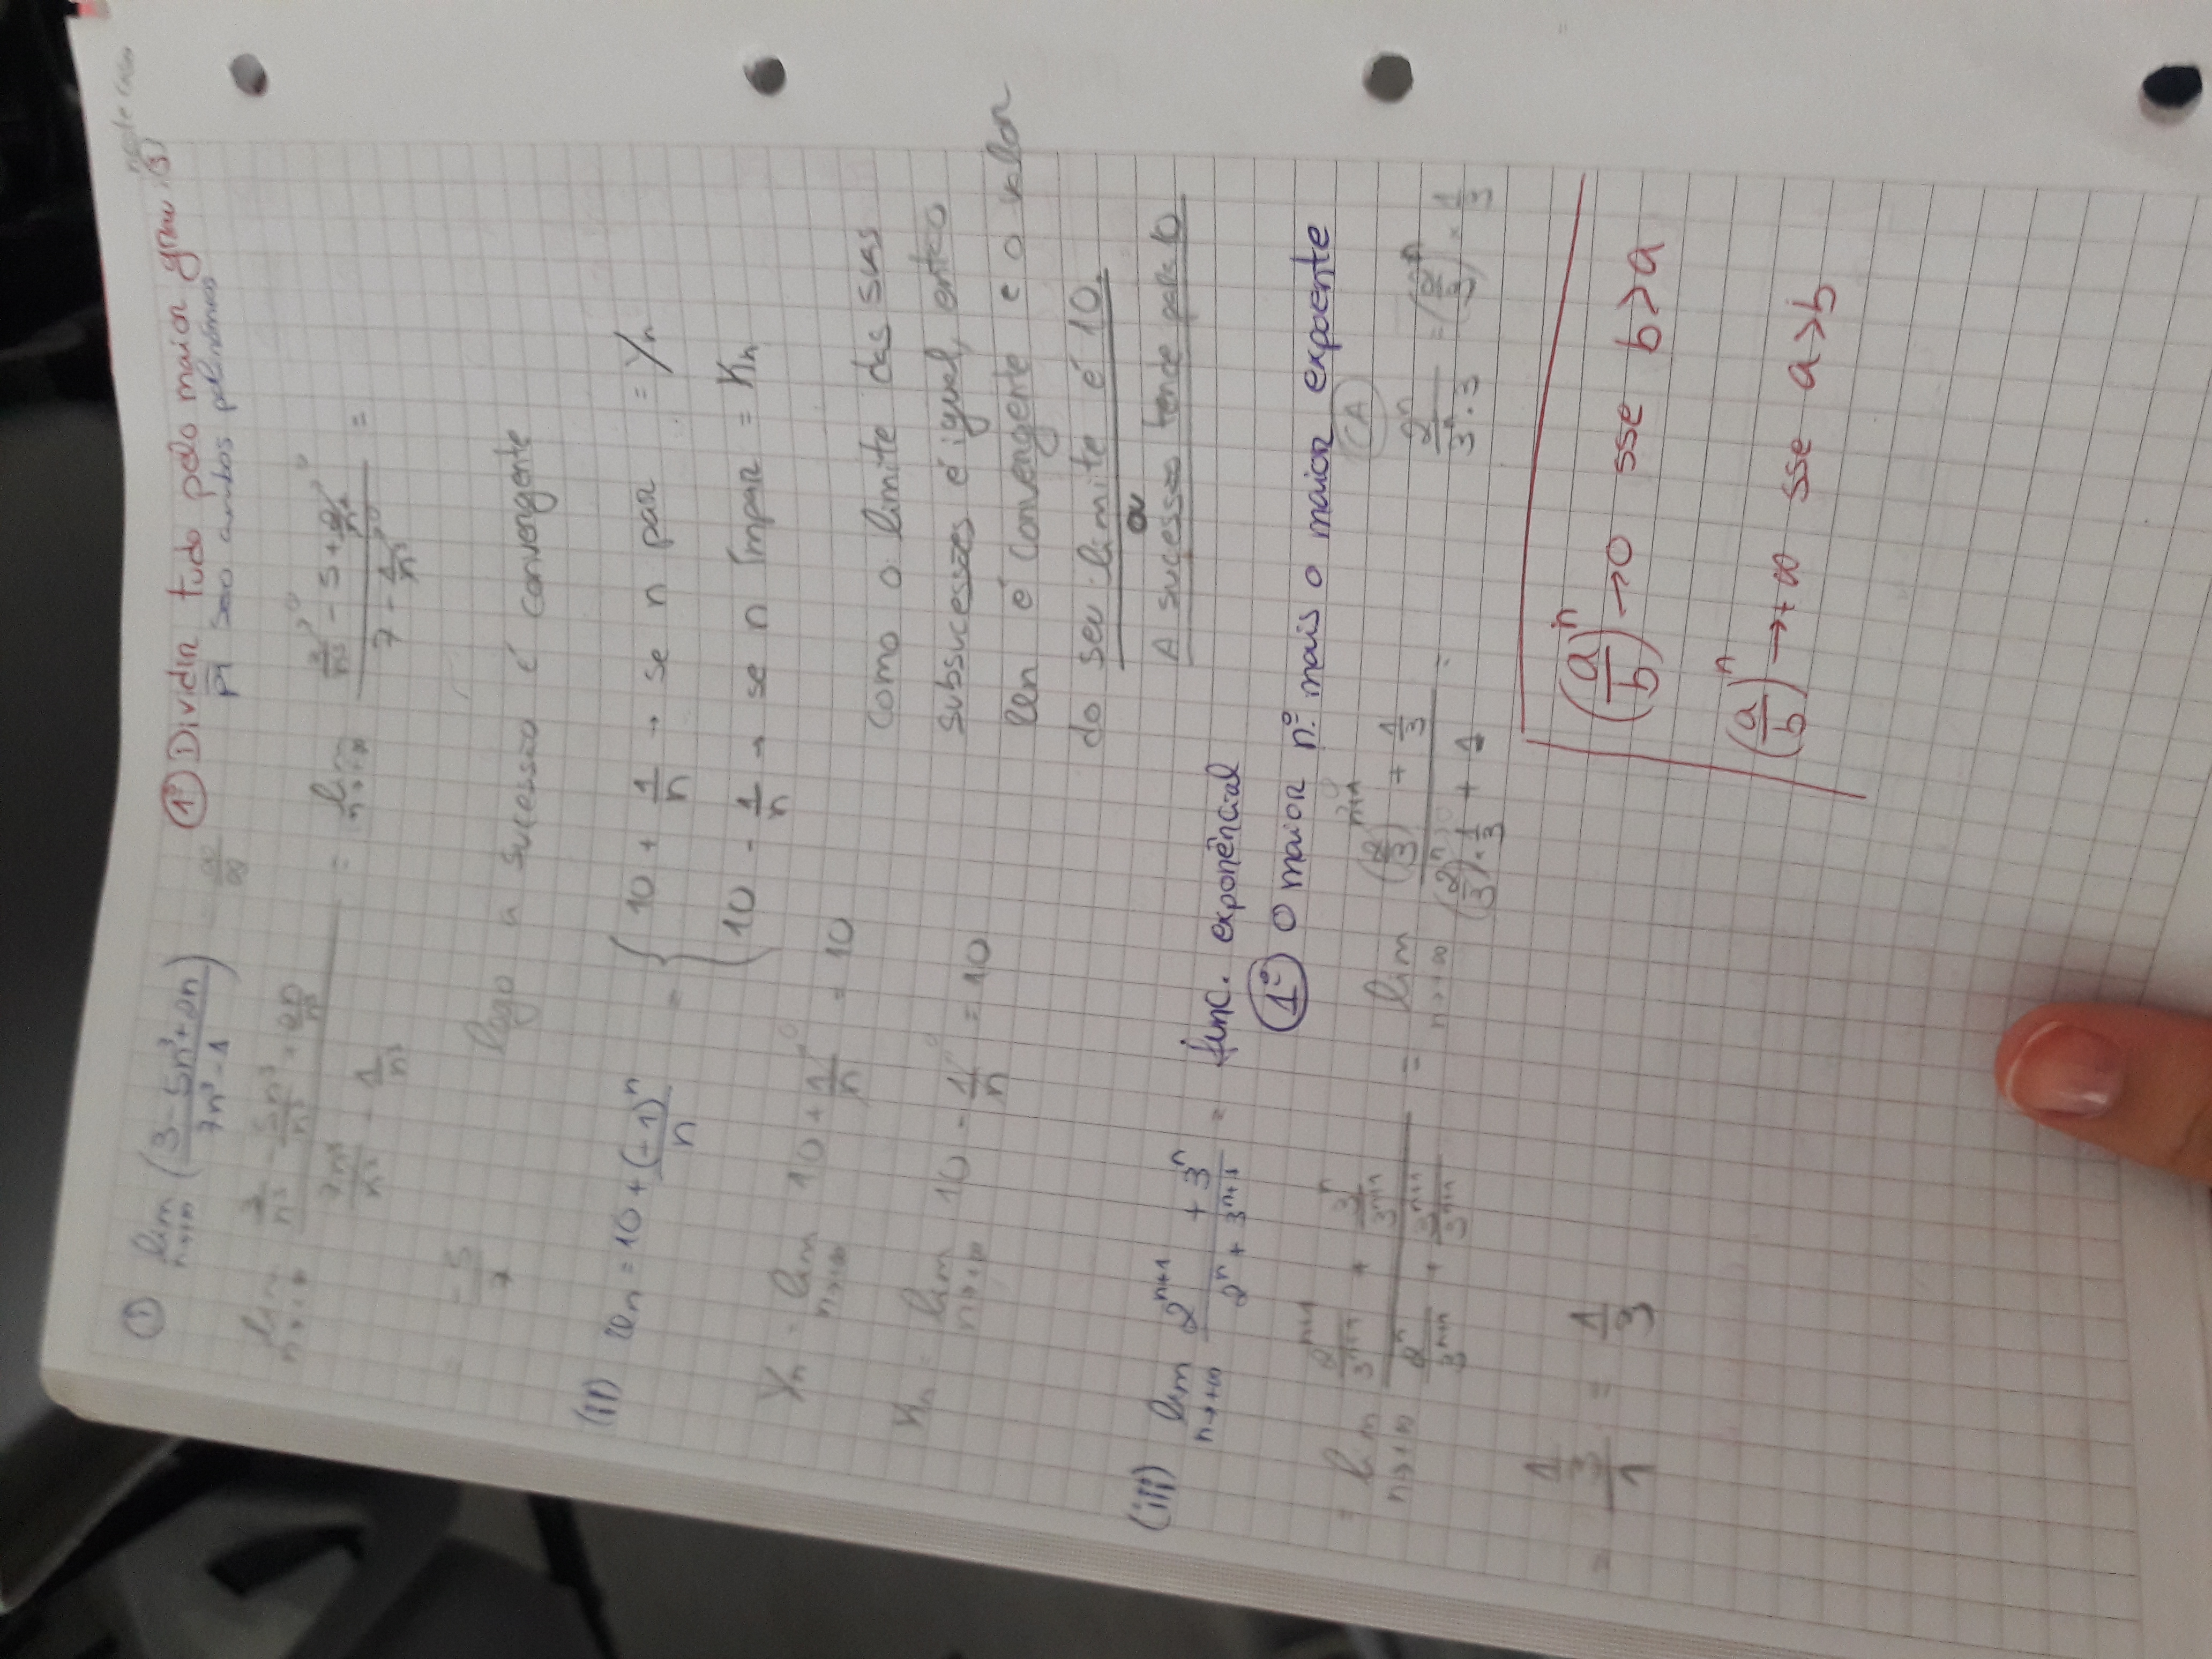 ① lim n→+∞ (3 - 5n³ + 2n / 7n³ - 1) = ∞/∞
①º Dividir tudo pelo maior grau (3) neste caso
p/ são ambos polinómios
lim n→+∞ (3/n³ - 5n³/n³ + 2n/n³) / (7n³/n³ - 1/n³) = lim n→+∞ (3/n³→0 - 5 + 2/n²→0) / (7 - 1/n³→0) =
= -5/7 logo a sucessão é convergente
(ii) un = 10 + (-1)ⁿ/n = { 10 + 1/n → se n par = Yn
10 - 1/n → se n ímpar = Xn
Yn = lim n→+∞ 10 + 1/n→0 = 10
Xn = lim n→+∞ 10 - 1/n→0 = 10
Como o limite das suas
subsucessões é igual, então
un é convergente e o valor
do seu limite é 10.
ou
A sucessão tende para 10
(iii) lim n→+∞ (2ⁿ⁺¹ + 3ⁿ) / (2ⁿ + 3ⁿ⁺¹) = func. exponêncial
1º O maior nº mais o maior expoente
= lim n→+∞ (2ⁿ⁺¹/3ⁿ⁺¹ + 3ⁿ/3ⁿ⁺¹) / (2ⁿ/3ⁿ⁺¹ + 3ⁿ⁺¹/3ⁿ⁺¹) = lim n→+∞ ((2/3)ⁿ⁺¹→0 + 1/3) / ((2/3)ⁿ→0 · 1/3 + 1) =
CA
2ⁿ/3ⁿ·3 = (2/3)ⁿ × 1/3
= (1/3)/1 = 1/3
(a/b)ⁿ → 0 sse b > a
(a/b)ⁿ → +∞ sse a > b